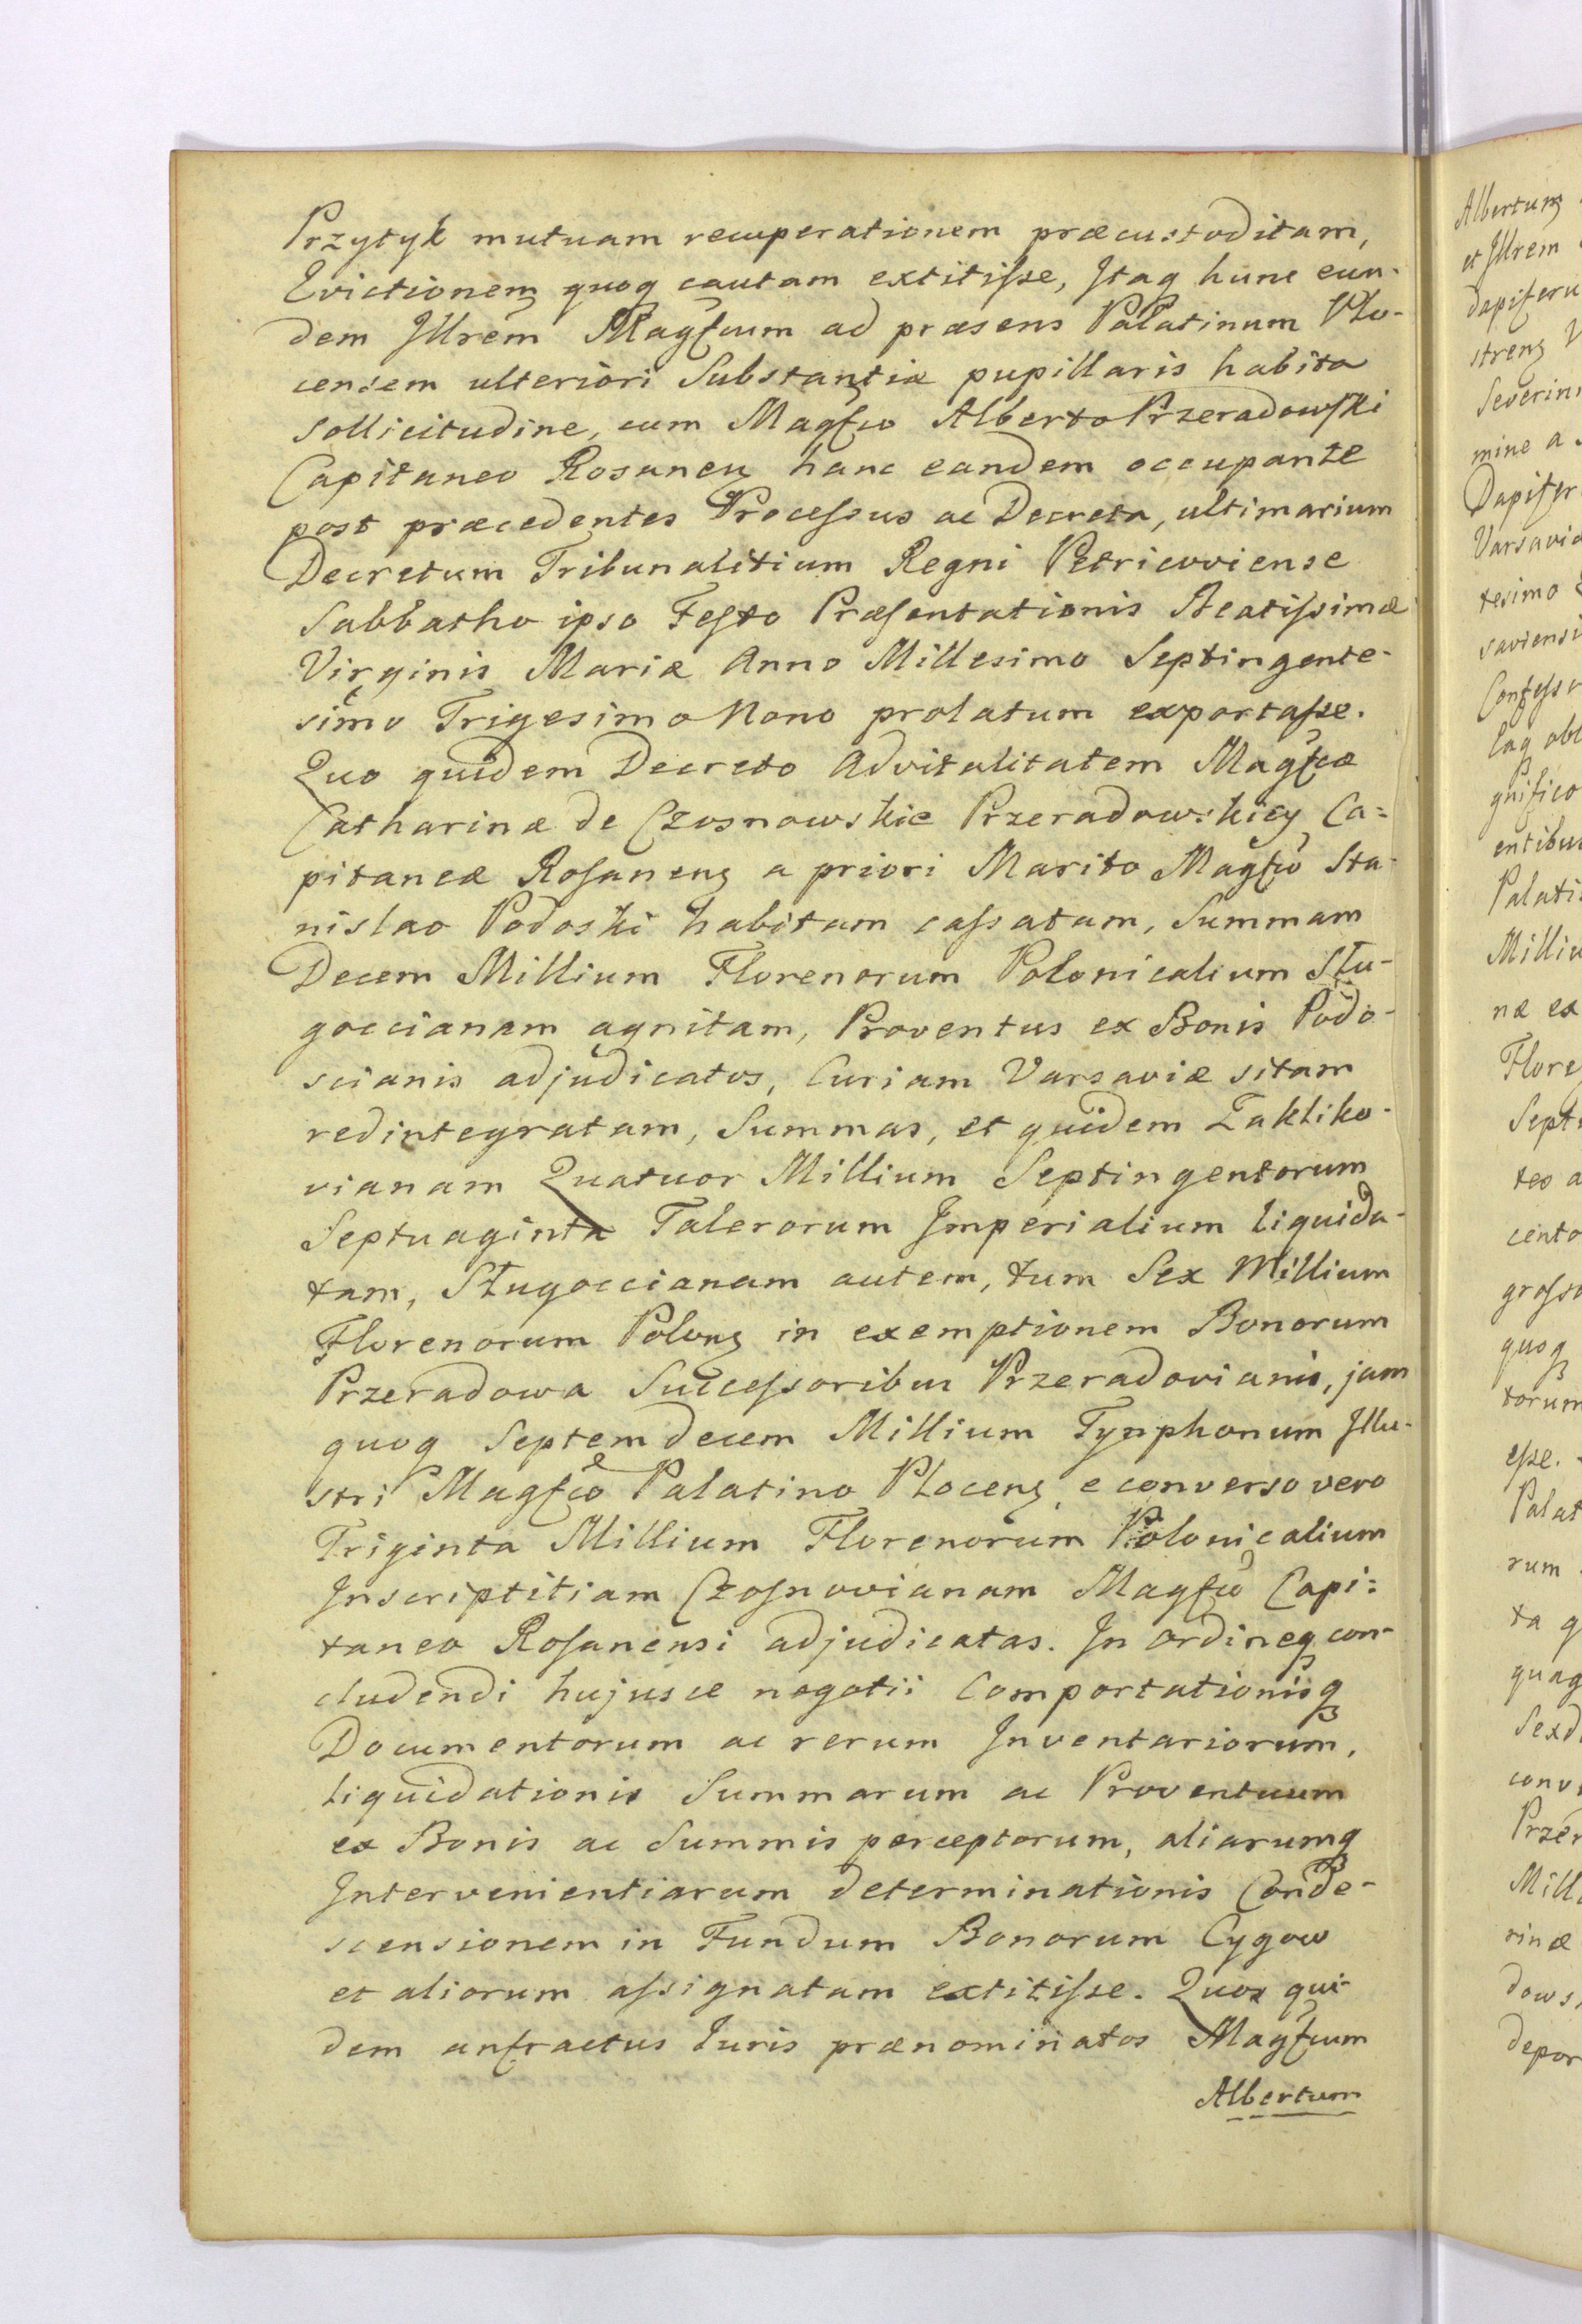 Przytyk mutuam recuperationem præcustoditam,
Evictionem quoq cautam extitisse, Itaq hunc eun-
dem Illrem Magfcum ad præsens Palatinum Plo-
censem ulteriori Substantiæ pupillaris habita
sollicitudine, cum Magfco Alberto Przeradowski
Capitaneo Rosanen hanc eandem occupante
post præcedentes Processus ac Decreta, ultimarium
Decretum Tribunalitium Regni Petricoviense
Sabbatho ipso Festo Præsentationis Beatissimæ
Virginis Mariæ Anno Millesimo Septingente-
simo Trigesimo Nono prolatum exportasse.
Quo quidem Decreto Advitalitatem Magfcæ
Catharinæ de Czosnowskie Przeradowskiey Ca=
pitaneæ Rosanens a priori Marito Magfco Sta-
nislao Podoski habitam cassatam, Summam
Decem Millium Florenorum Polonicalium Słu-
goccianam agnitam, Proventus ex Bonis Podo-
scianis adjudicatos, Curiam Varsaviæ sitam
redintegratam, Summas, et quidem Zakliko-
vianam Quatuor Millium Septingentorum
Septuaginta Talerorum Imperialium liquida-
tam, Sługoccianam autem, tum Sex Millium
Florenorum Polon in exemptionem Bonorum
Przeradowa Successoribus Przeradovianis, jam
quoq Septemdecem Millium Tynphonum Illu-
stri Magfco Palatino Plocens, e converso vero
Triginta Millium Florenorum Polonicalium
Inscriptitiam Czosnovianam Magfco Capi=
taneo Rosanensi adjudicatas. In Ordineq con-
cludendi hujusce negotii Comportationisq
Documentorum ac rerum Inventariorum,
liquidationis Summarum ac Proventuum
ex Bonis ac Summis perceptorum, aliarumq
Intervenientiarum determinationis Conde-
scensionem in Fundum Bonorum Cygow
et aliorum assignatam extitisse. Quos qui-
dem anfractus Iuris prænominatos Magfcum
Albertum
Albertum
et Illrem
dapiferu
strens
Severin
mine a
Dapifer
Varsavia
tesimo
saviensi
Confesso
laq obl
gnifico
entibus
Palati
Milliu
næ ex
Flore
Sept
teo a
cento
grosso
quoq
torum
esse.
Palat
rum
ta q
quag
Sexd
conv
Przer
Mill
rinæ
dows
depor